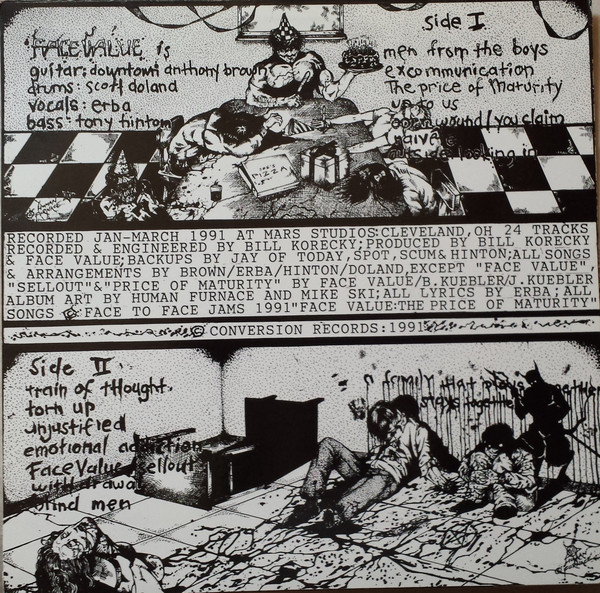 FACE VALUE is
guitar: downtown anthony brown
drums: scott doland
vocals: erba
bass: tony hinton
side I
men from the boys
excommunication
The price of maturity
up to us
open wound / you claim
naive
outside looking in
PIZZA
RECORDED JAN-MARCH 1991 AT MARS STUDIOS:CLEVELAND,OH 24 TRACKS
RECORDED & ENGINEERED BY BILL KORECKY;PRODUCED BY BILL KORECKY
& FACE VALUE;BACKUPS BY JAY OF TODAY,SPOT,SCUM& HINTON;ALL SONGS
& ARRANGEMENTS BY BROWN/ERBA/HINTON/DOLAND,EXCEPT "FACE VALUE",
"SELLOUT"&"PRICE OF MATURITY" BY FACE VALUE/B.KUEBLER/J.KUEBLER
ALBUM ART BY HUMAN FURNACE AND MIKE SKI;ALL LYRICS BY ERBA;ALL
SONGS ©:FACE TO FACE JAMS 1991"FACE VALUE:THE PRICE OF MATURITY"
© CONVERSION RECORDS:1991
Side II
train of thought
torn up
unjustified
emotional addiction
Face Value / sellout
withdrawal
blind men
a family that plays together
stays together